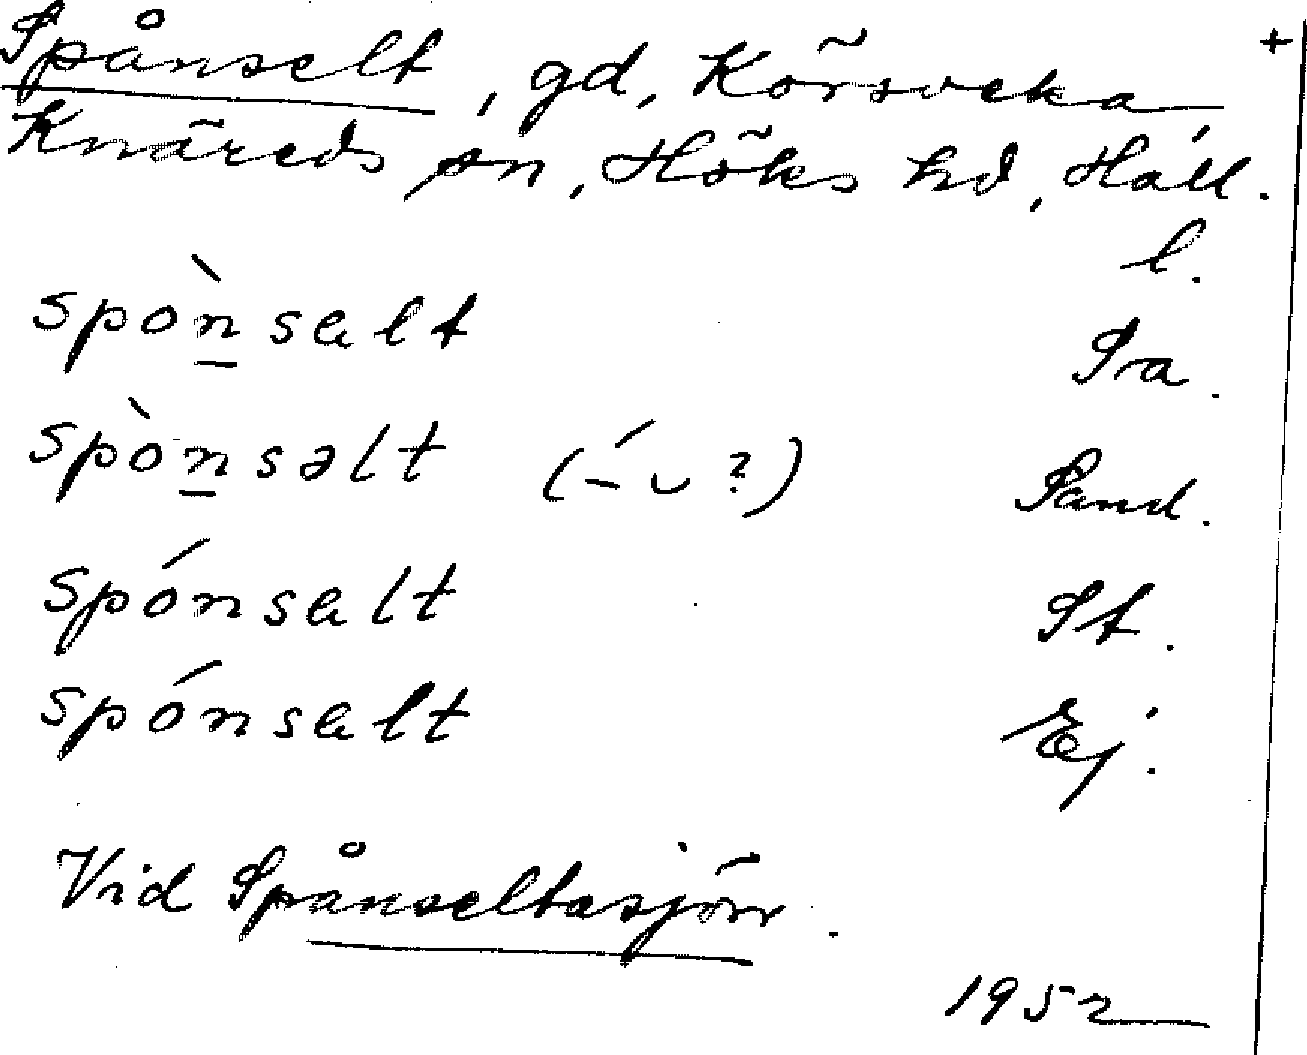 Spånselt, gd, Körsveka, +
Knäreds sn, Höks hd, Hall.
l.
spòn̲sælt Sra.
spòn̲səlt (–́ ᴗ ?) Sand.
spónsælt St.
spónsælt Ej.
Vid Spånseltasjön.
1952